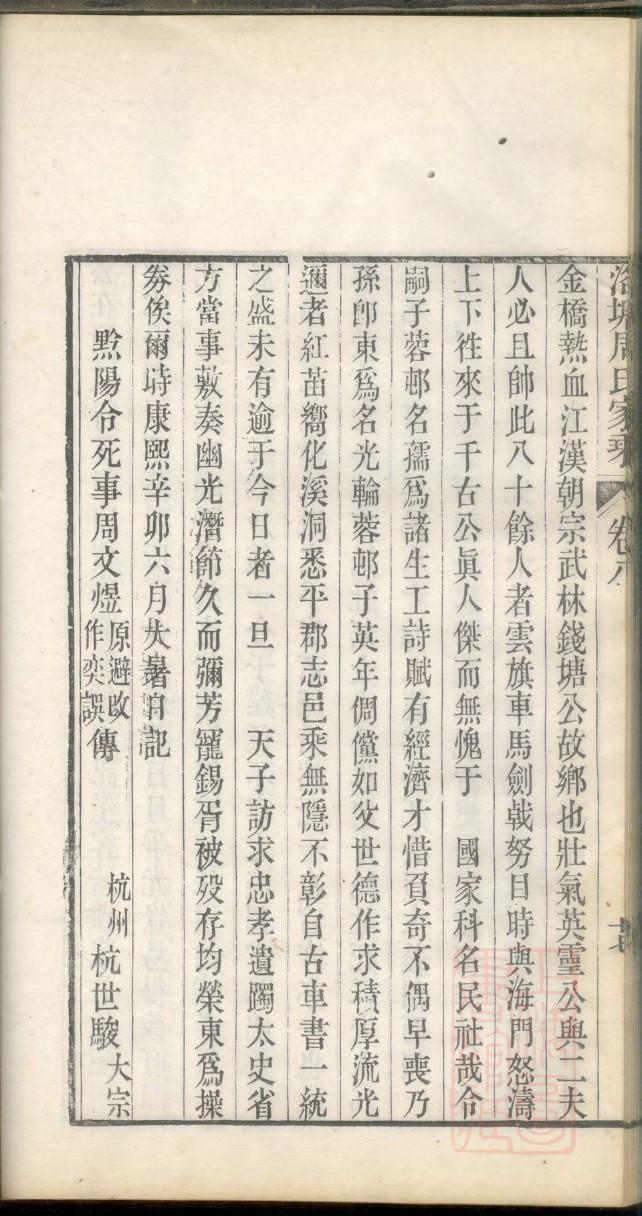 洛塘周氏家乘 卷八
金橋熱血江漢朝宗武林錢塘公故鄉也壯氣英靈公與二夫
人必且帥此八十餘人者雲旗車馬劍戟努目時與海門怒濤
上下往來于千古公眞人傑而無愧于　國家科名民社哉令
嗣子蓉邨名孺爲諸生工詩賦有經濟才惜負奇不偶早喪乃
孫卽東爲名光輪蓉邨子英年倜儻如父世德作求積厚流光
邇者紅苗嚮化溪洞悉平郡志邑乘無隱不彰自古車書一統
之盛未有逾于今日者一旦　天子訪求忠孝遺躅太史省
方當事敷奏幽光潛節久而彌芳寵錫胥被歿存均榮東爲操
券俟爾時康熙辛卯六月大暑日記
黔陽令死事周文煜原避改作奕誤傳　杭州杭世駿大宗